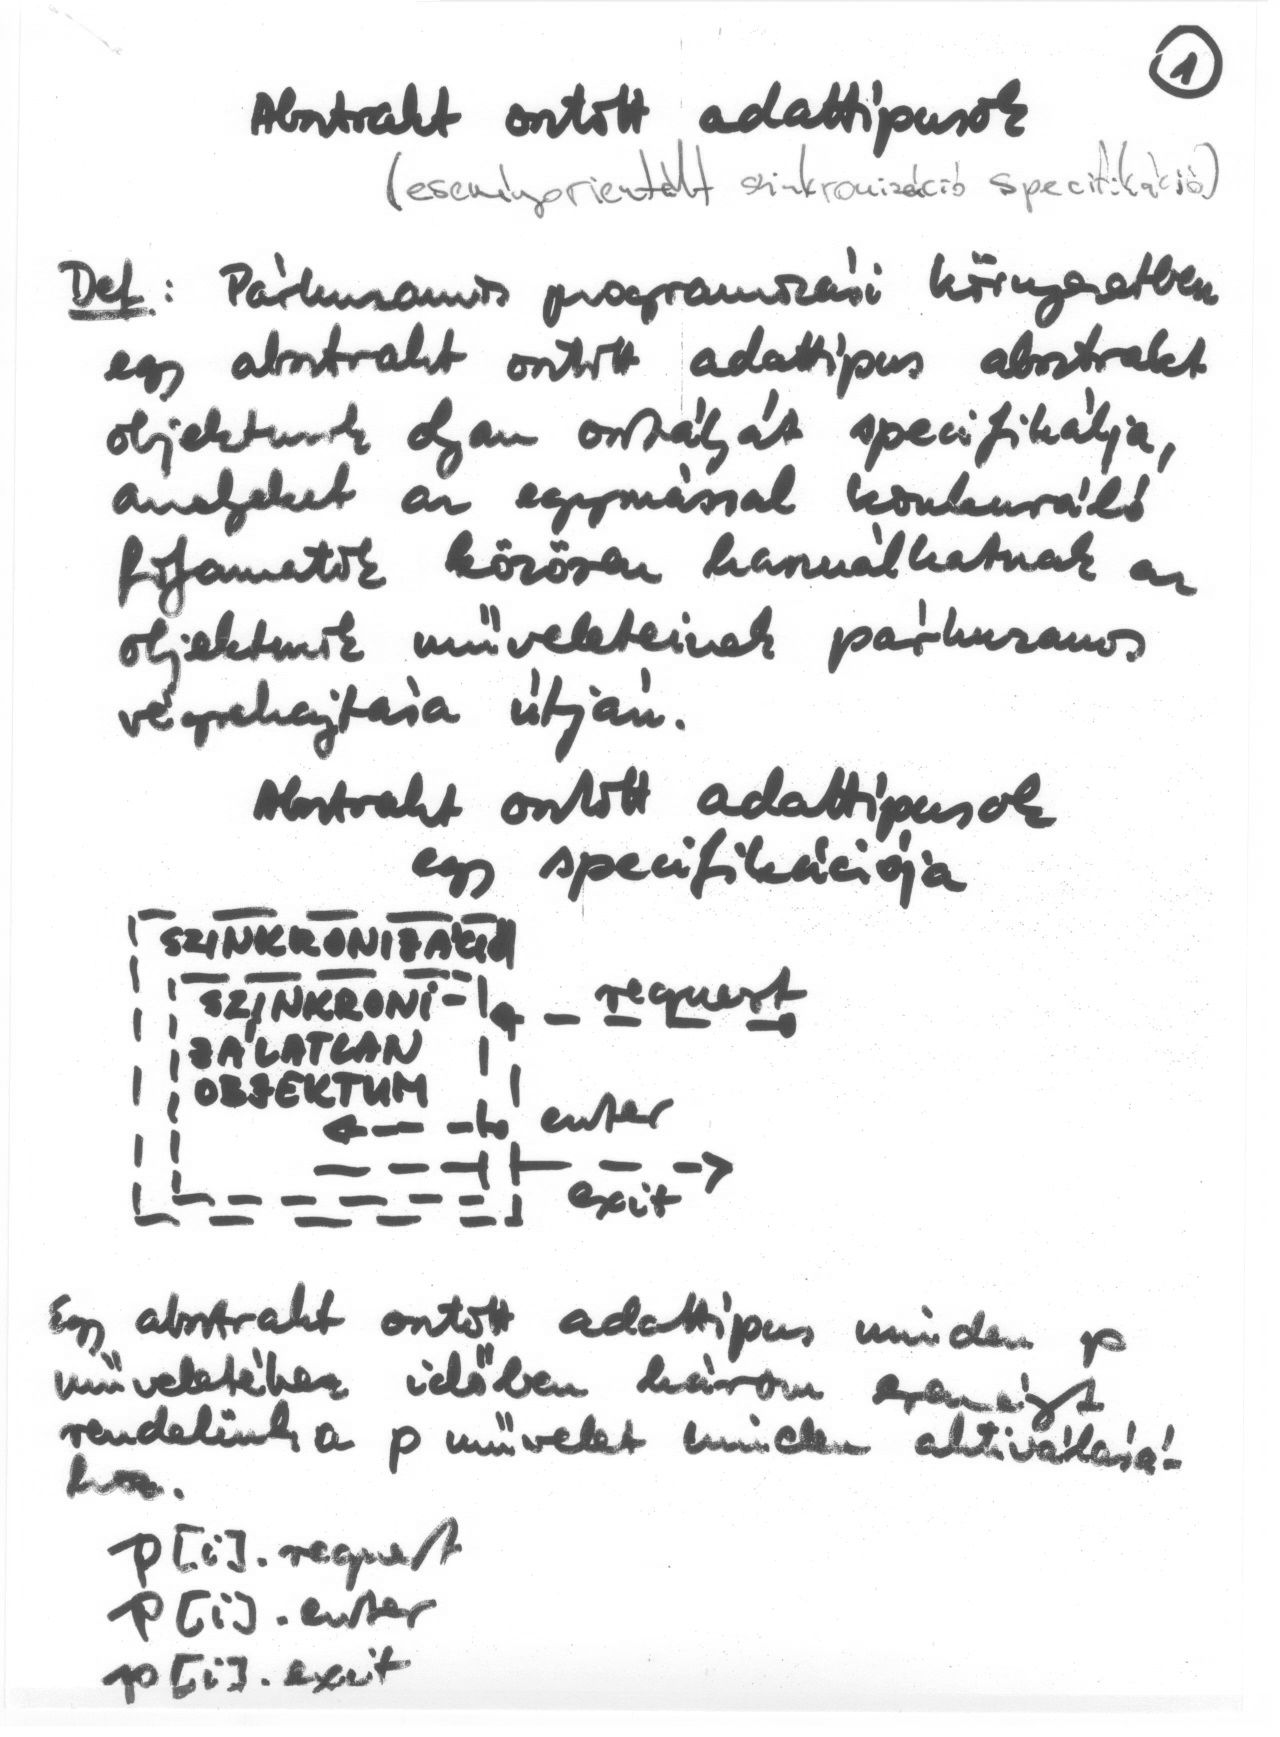 1
Absztrakt osztott adattípusok
(eseményorientált szinkronizáció specifikáció)
Def.: Párhuzamos programozási környezetben
egy absztrakt osztott adattípus absztrakt
objektumok olyan osztályát specifikálja,
amelyeket az egymással konkuráló
folyamatok közösen használhatnak az
objektumok műveleteinek párhuzamos
végrehajtása útján.
Absztrakt osztott adattípusok
egy specifikációja
SZINKRONIZÁCIÓ
SZINKRONI-
ZÁLATLAN
OBJEKTUM
request
enter
exit
Egy absztrakt osztott adattípus minden p
műveletéhez időben három eseményt
rendelünk a p művelet minden aktiválásá-
hoz.
p[i].request
p[i].enter
p[i].exit